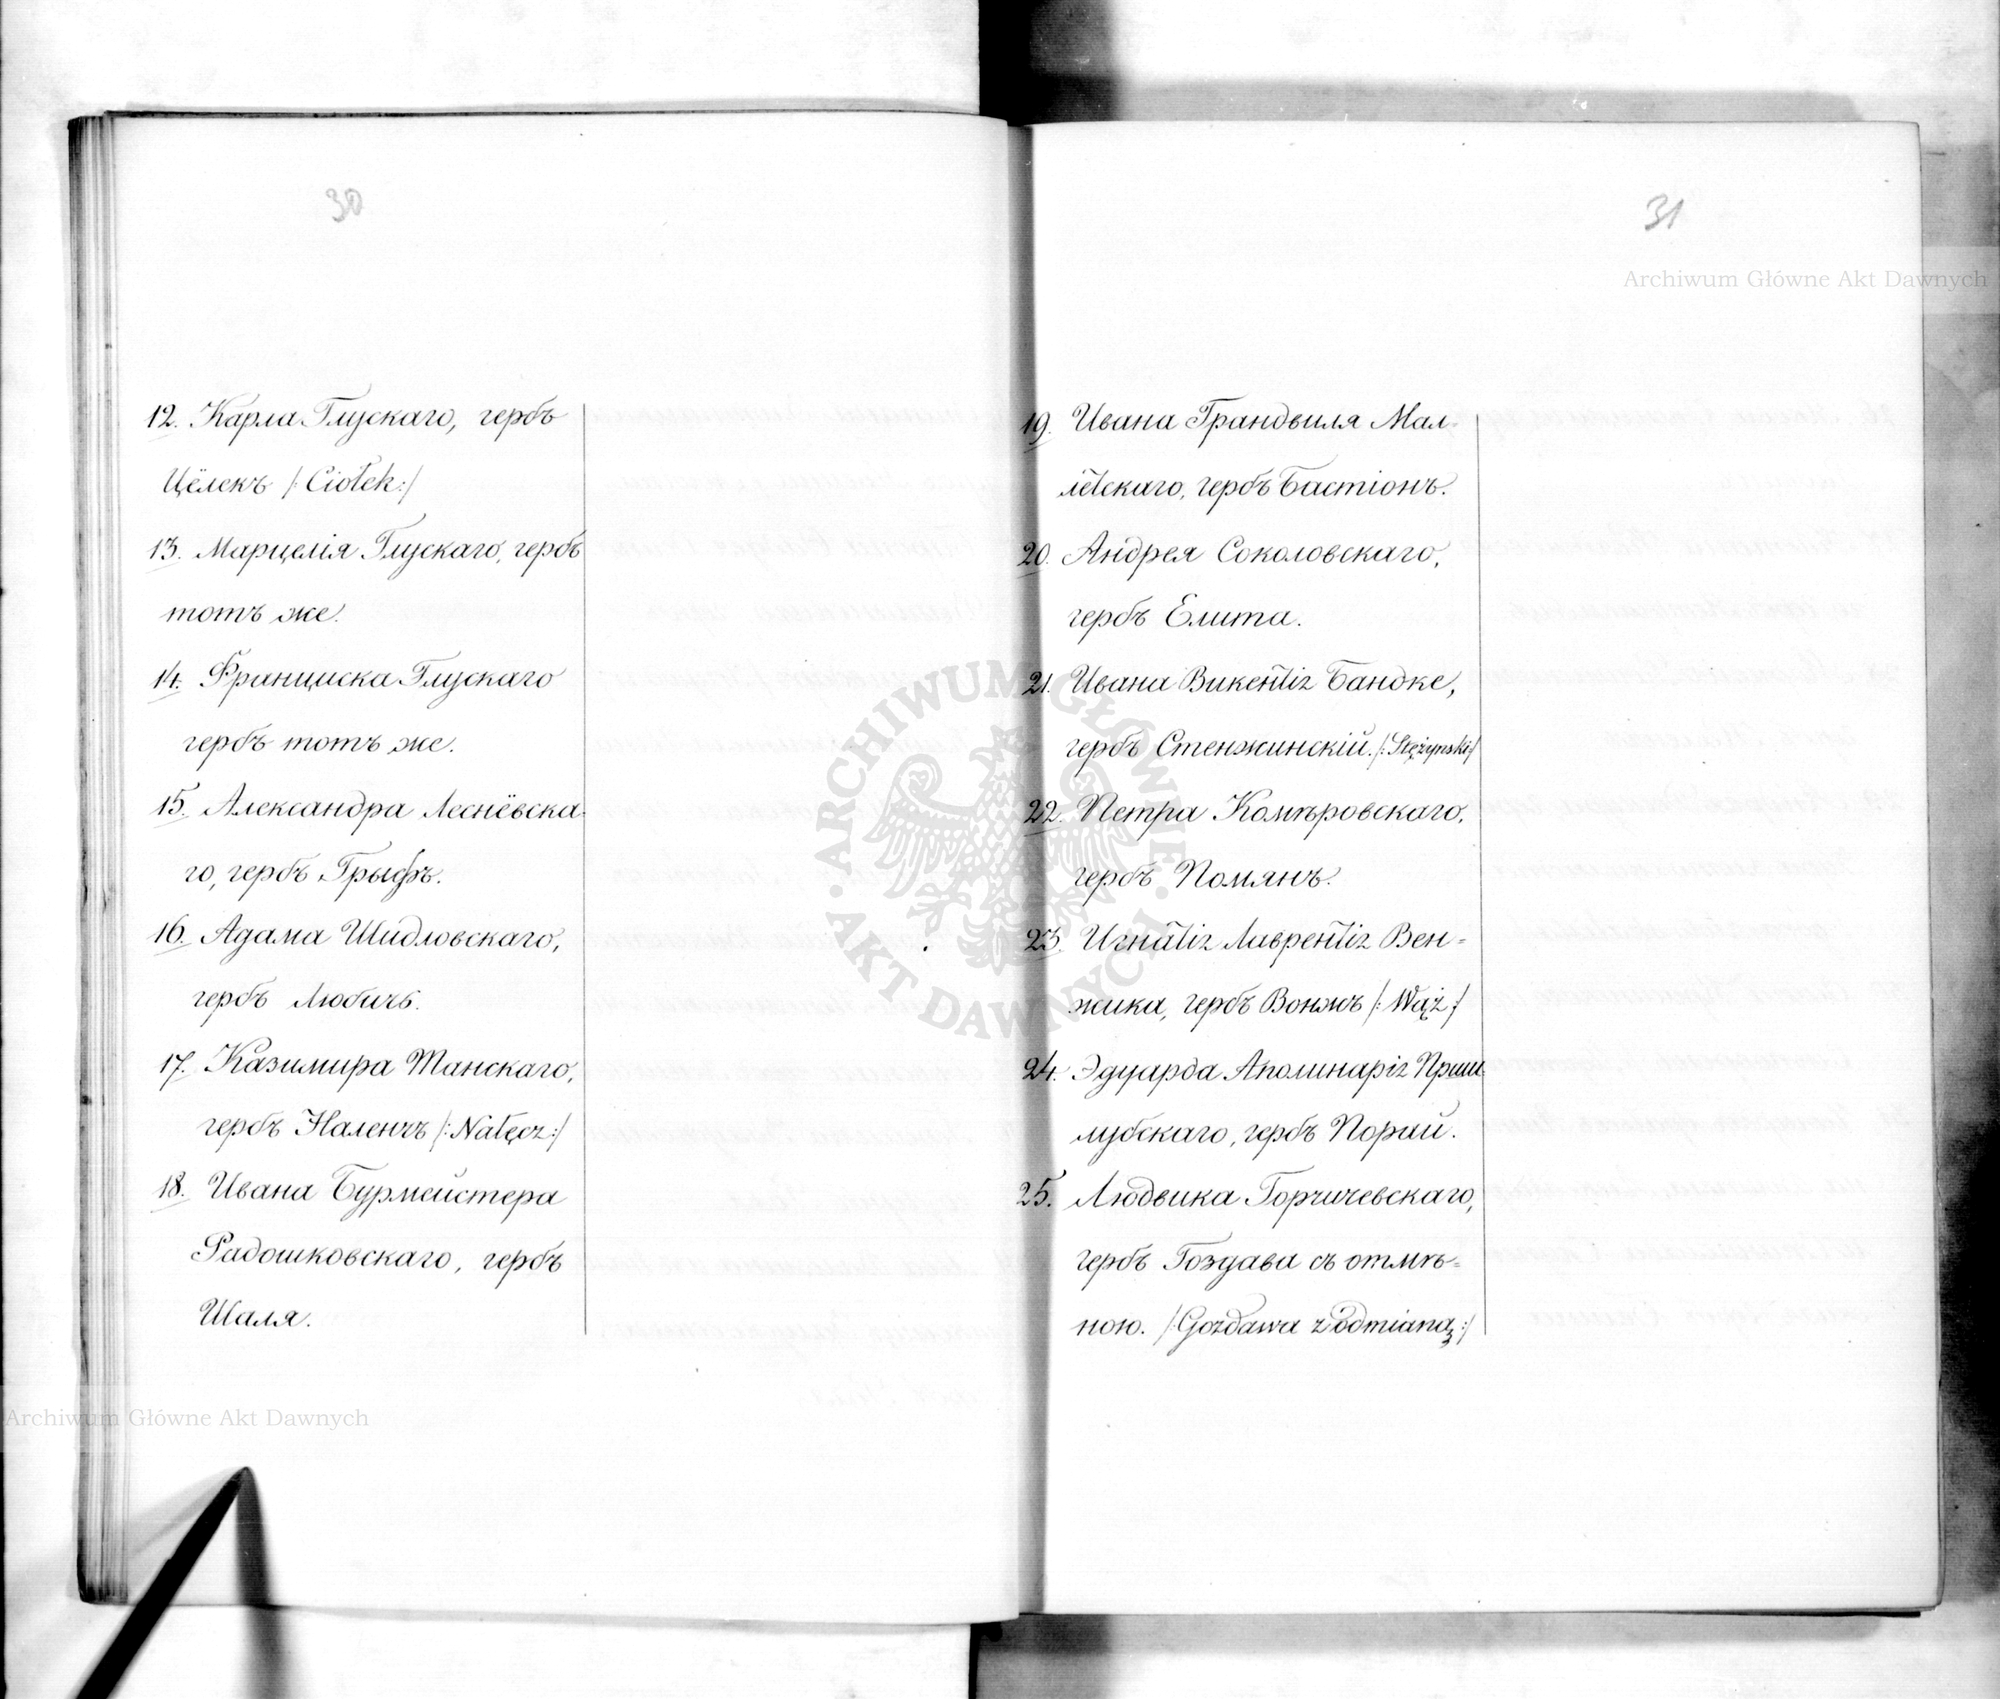 30
12. Карла Глускаго, гербъ
Цёлекъ /:Ciołek:/
13. Марцелія Глускаго, гербъ
тотъ же.
14. Франциска Глускаго
гербъ тотъ же.
15. Александра Леснёвска-
го, гербъ Грыфъ.
16. Адама Шидловскаго,
гербъ Любичъ.
17. Казимира Танскаго,
гербъ Наленчъ /:Nałęcz:/
18. Ивана Бурмейстера
Радошковскаго, гербъ
Шаля.
31
19. Ивана Грандвиля Мал-
летскаго, гербъ Бастіонъ.
20. Андрея Соколовскаго,
гербъ Елита.
21. Ивана Викентія Бандке,
гербъ Стенжинскій. /:Stężynski:/
22. Петра Комѣровскаго,
гербъ Помянъ.
23. Игнатія Лаврентія Вен=
жика, гербъ Вонжъ /:Wąż:/
24. Эдуарда Аполинарія Приш
лубскаго, гербъ Порай.
25. Людвика Горчичевскаго,
гербъ Гоздава съ отмѣ=
ною. /:Gozdawa z odmianą:/
Archiwum Główne Akt Dawnych
ARCHIWUM GŁÓWNE AKT DAWNYCH
Archiwum Główne Akt Dawnych